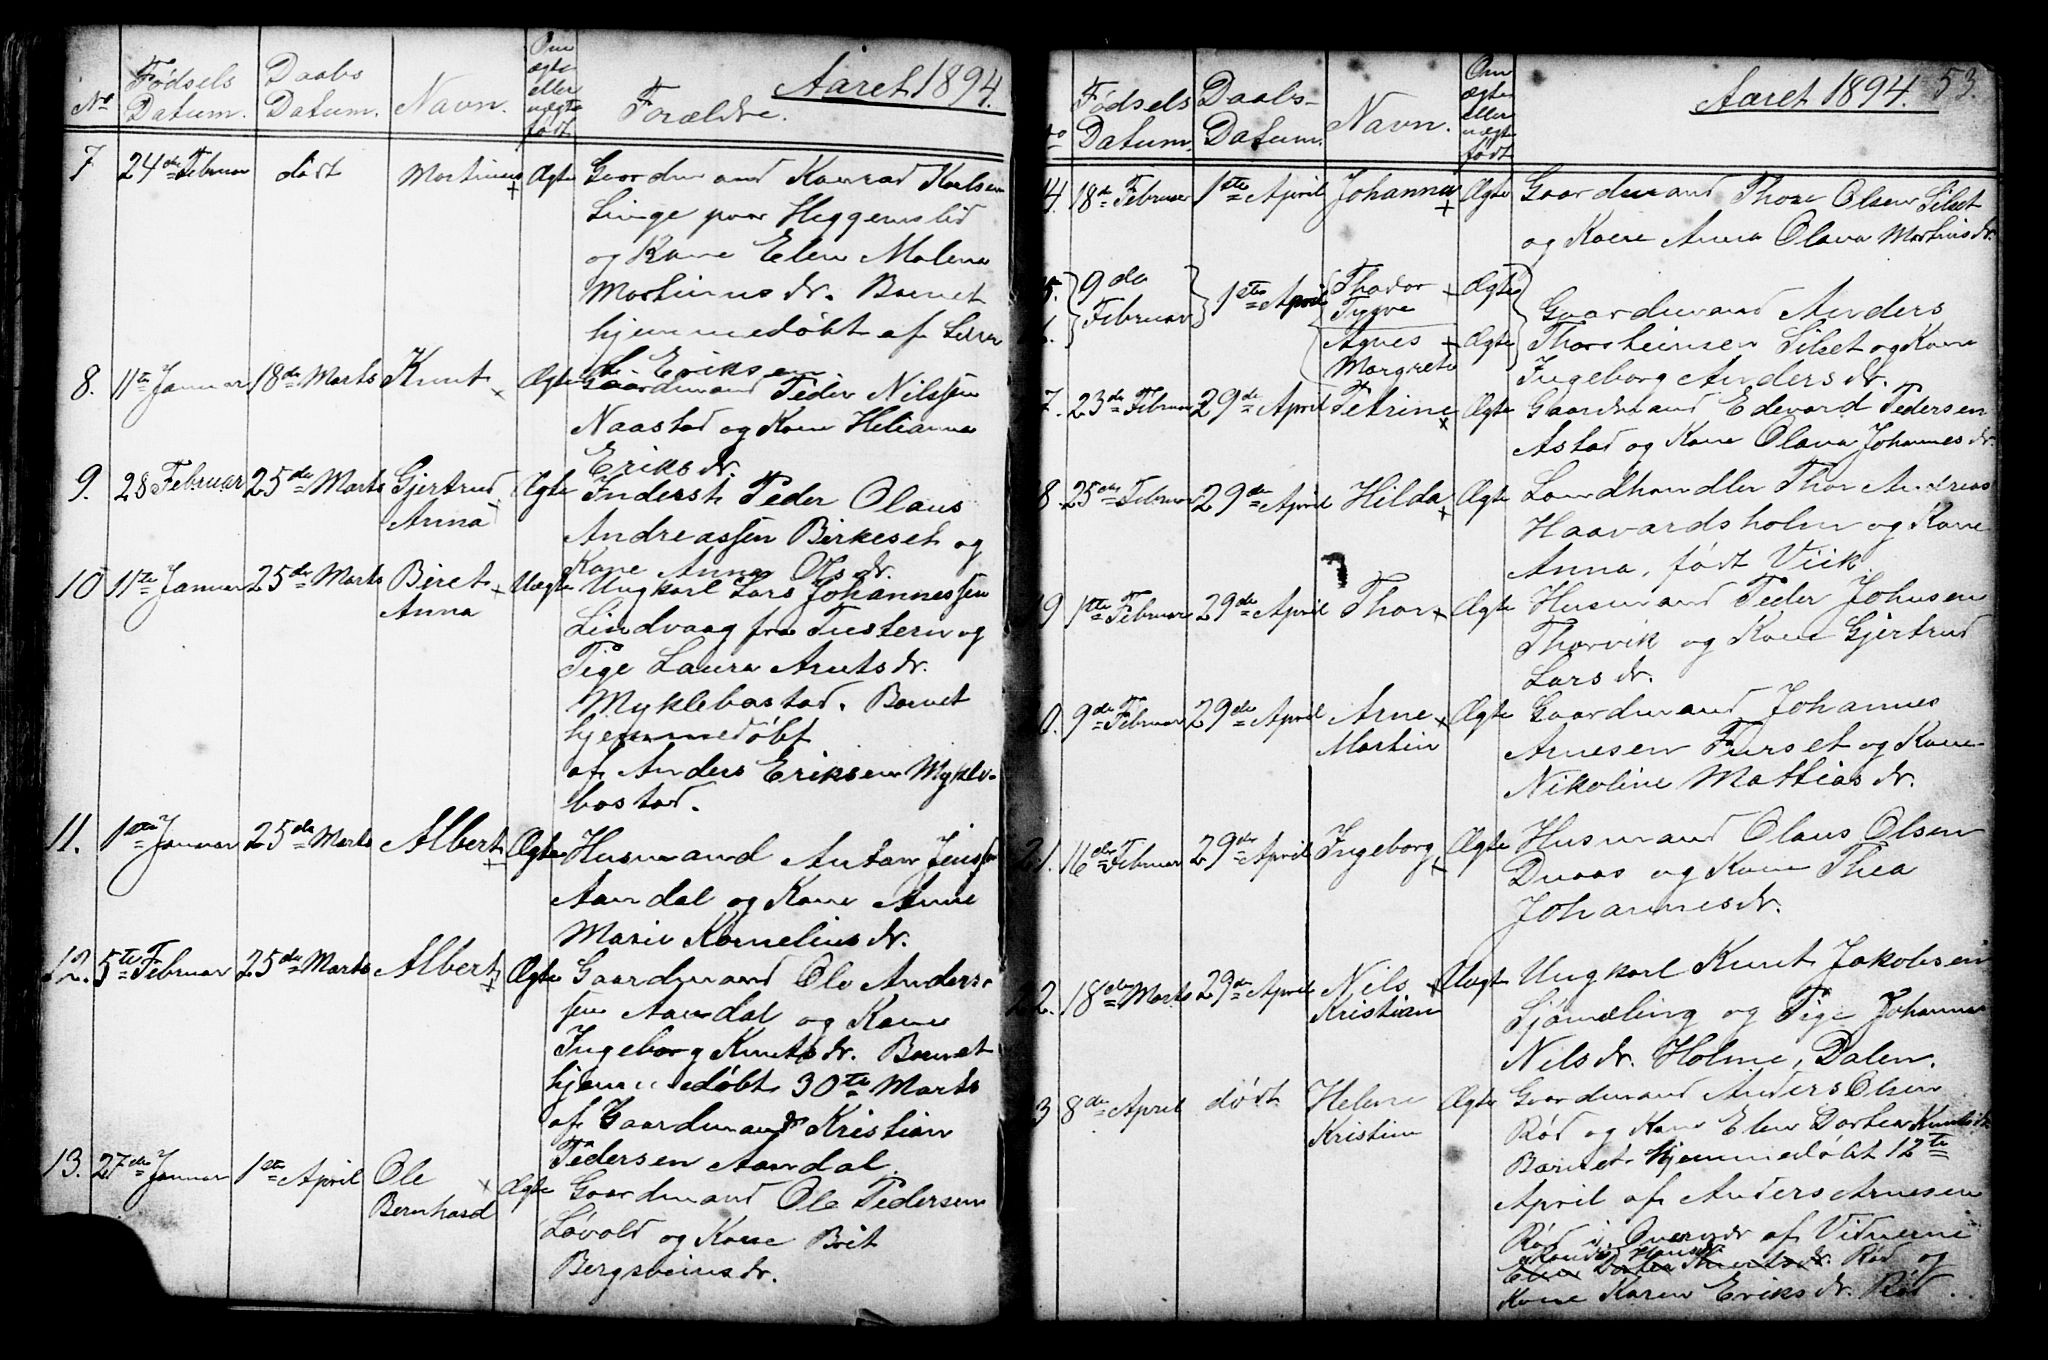 Aaret 1894.
No Fødsels Datum. Daabs Datum. Navn. Om ægte eller uægte født Forældre.
7 24de Februar dødt Martinus Ægte Gaardmand Konrad Karlsen
Linge paa Heggemslid
og Kone Elen Malena
Martinusdr. Barnet
hjemmedøbt af Lars
Eriksen
8. 11te Januar 18de Marts Knut Ægte Gaardmand Peder Nilssen
Naastad og Kone Helianna
Eriksdr.
9. 28 Februar 25de Marts Gjertrud Ægte Inderst Peder Olaus
Anna Andreassen Birkeset og
Kone Anna Olsdr.
10 11te Januar 25de Marts Beret Uægte Ungkarl Lars Johannessen
Anna Lindvaag fra Tustern og
Pige Laura Arntsdr.
Myklebostad. Barnet
hjemmedøbt
af Anders Eriksen Mykle-
bostad.
11. 1ste Januar 25de Marts Albert Ægte Husmand Anton Jenss
Aandal og Kone Anne
Marie Korneliusdr.
12. 5te Februar 25de Marts Albert Ægte Gaardmand Ole Anders-
sen Aandal og Kone
Ingeborg Knutsdr. Barnet
hjemmedøbt 30te Marts
af Gaardmand Kristian
Pedersen Aandal.
13. 27de Januar 1ste April Ole Ægte Gaardmand Ole Pedersen
Bernhard Løvold og Kone Brit
Bergsveinsdr.
Aaret 1894. 53.
No Fødsels Datum. Daabs- Datum. Navn. Om ægte eller uægte født
4. 18de Februar 1ste April Johanna Ægte Gaardmand Thore Olsen Silset
og Kone Anna Olava Martinsdr.
5. 9de Februar 1ste April Thodor Ægte
Tygve Gaardmand Anders
6. Agnes Ægte Thorsteinsen Silset og Kone
Margrete Ingeborg Andersdr.
7. 23de Februar 29de April Petrine Ægte Gaardmand Edevard Pedersen
Astad og Kone Olava Johannesdr.
8. 25de Februar 29de April Hilda Ægte Landhandler Thor Andreas
Haavardsholm og Kone
Anna, født Viik.
9 1ste Februar 29de April Thor Ægte Husmand Peder Johnsen
Thorvik og Kone Gjertrud
Larsdr.
0. 9de Februar 29de April Arne Ægte Gaardmand Johannes
Martin Arnesen Furset og Kone
Nikoline Mattiasdr.
21. 16de Februar 29de April Ingeborg Ægte Husmand Olaus Olsen
Duaas og Kone Thea
Johannesdr.
22. 18de Marts 29de April Nils Uægte Ungkarl Knut Jakobsen
Kristian Sjømæling og Pige Johanna
Nilsdr. Holme, Dalen.
3 8de April dødt Helene Ægte Gaardmand Anders Olsen
Kristine Rød og Kone Elen Dortea Knutsdr.
Barnet hjemmedøbt 12te
April af Anders Arnesen
Rød i Overvær af Vidnerne
Hansdr.
Elen Dortea Knutsdr. Rød og
Kone Karen Eriksdr. Rød.